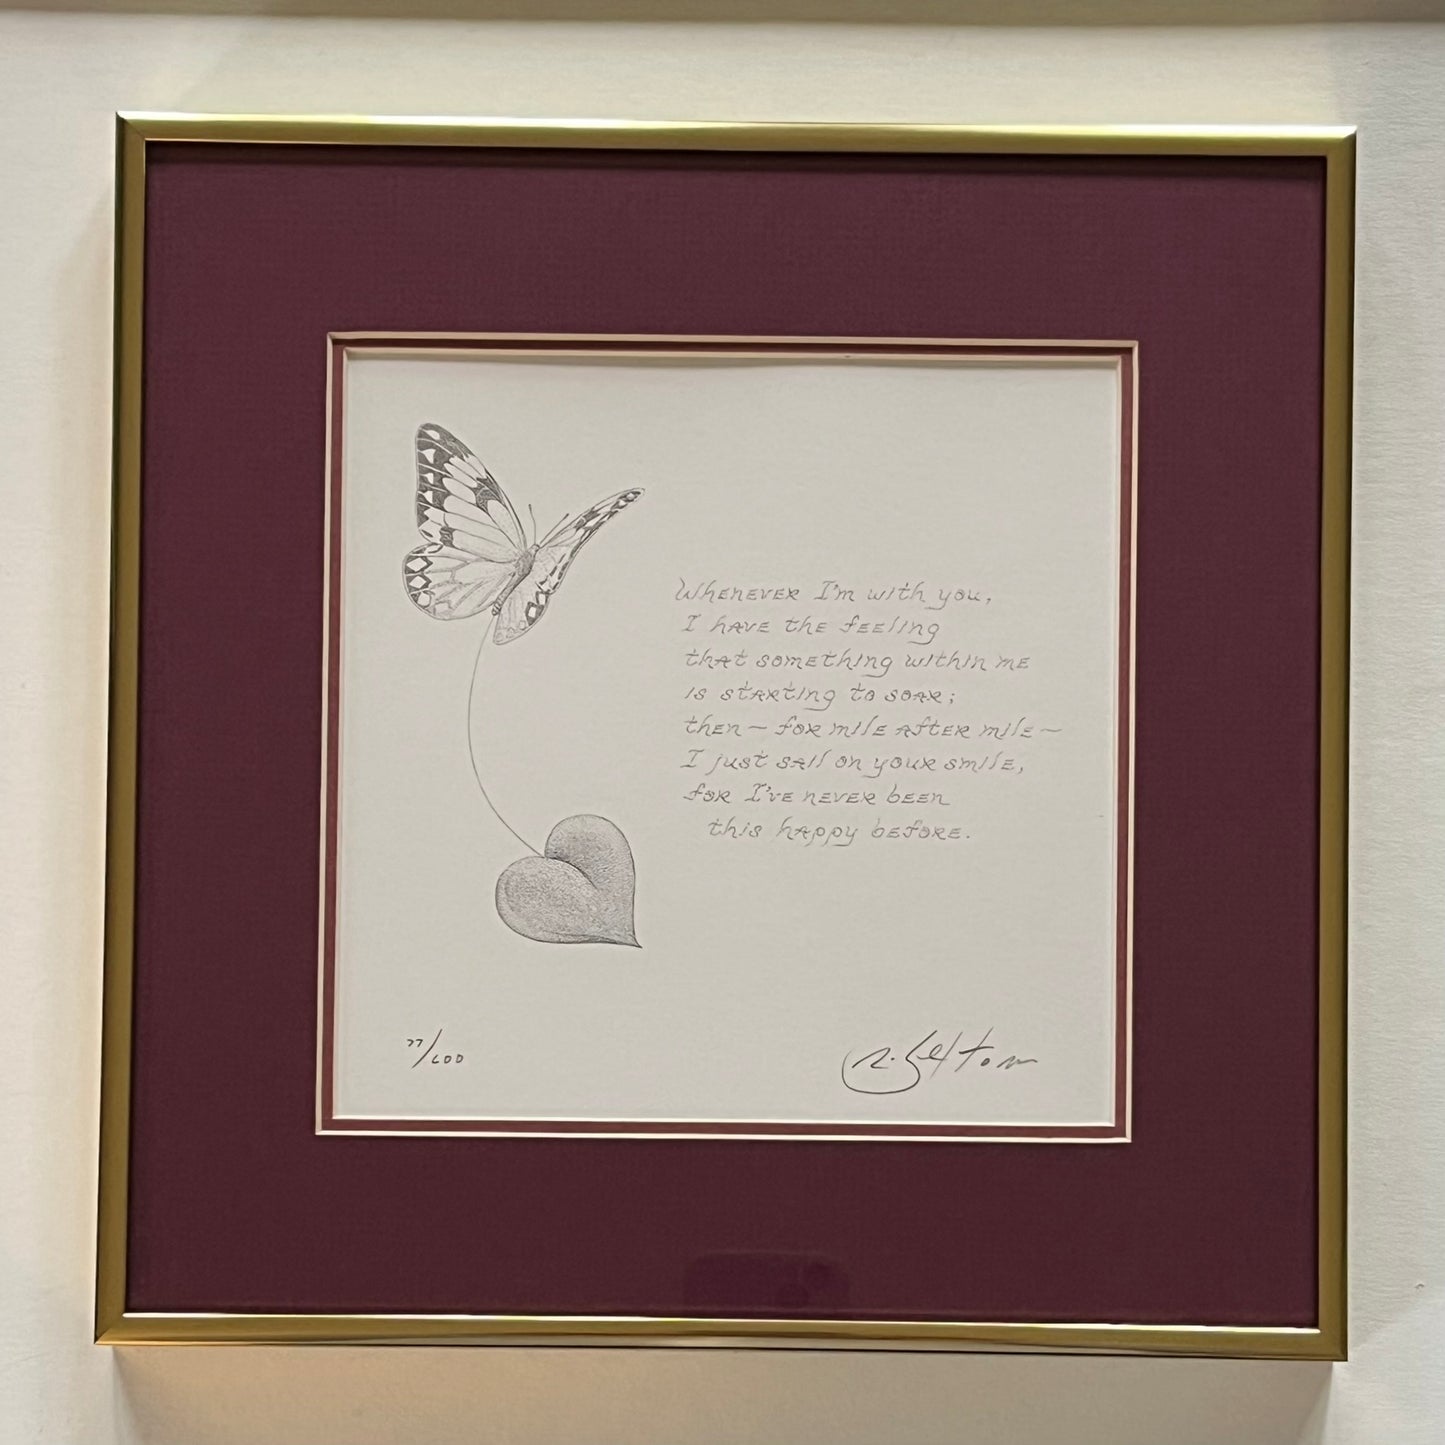 Whenever I'm with you,
I have the feeling
that something within me
is starting to soar;
then — for mile after mile —
I just sail on your smile,
for I've never been
this happy before.
77/600
R. Selton